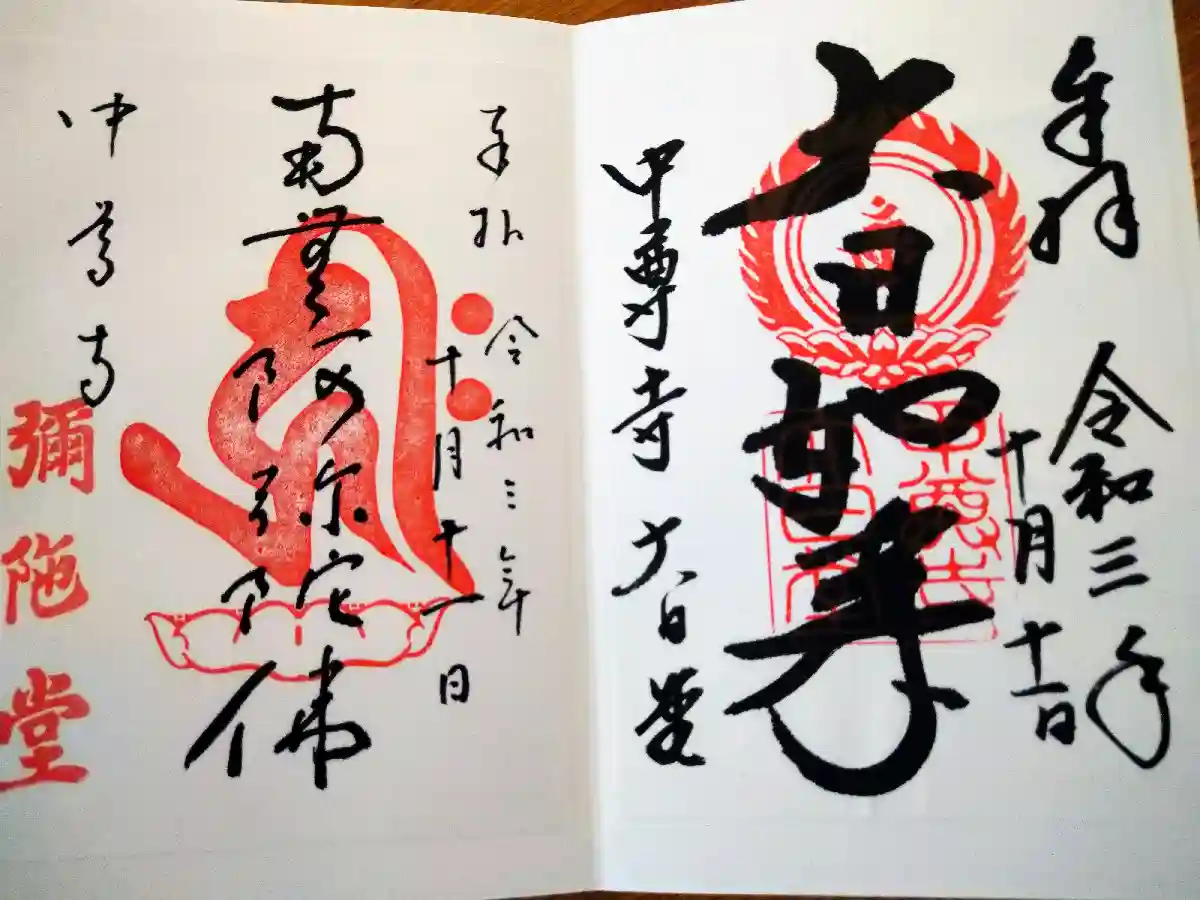 奉拝 令和三年
十月十一日
大日如来
中尊寺 大日堂
奉拝 令和三年
十月十一日
南無阿弥陀佛
中尊寺
彌陀堂